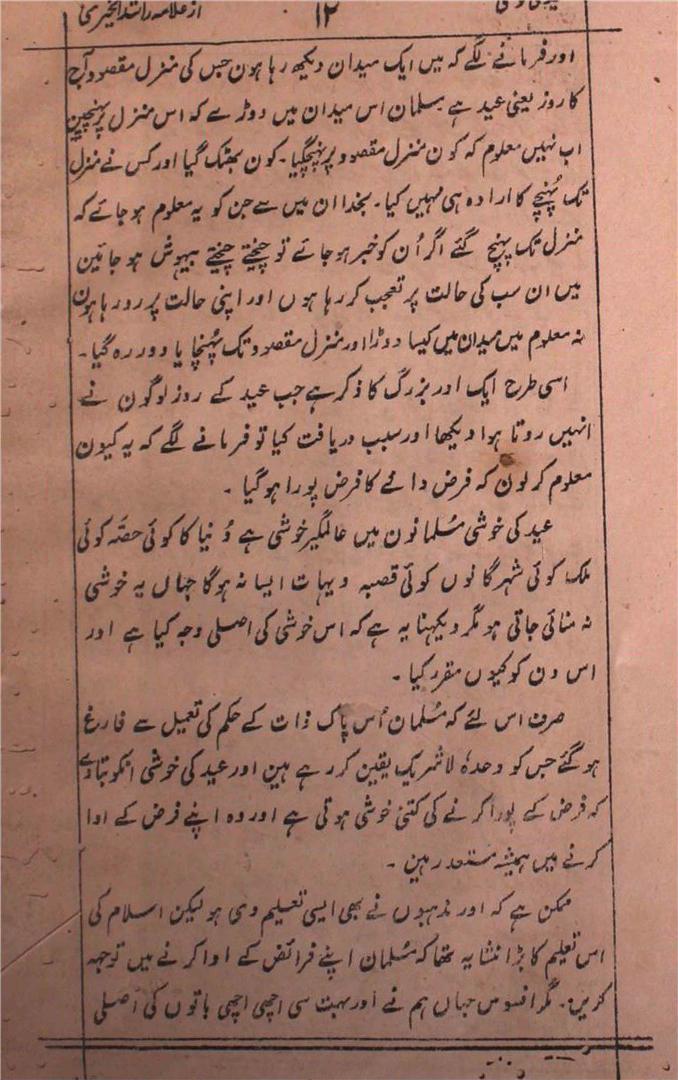 از علامہ راشد الخیری ۱۲
اور فرمانے لگے کہ میں ایک میدان دیکھ رہا ہون جس کی منزل مقصود آج
کا روز یعنی عید ہے مسلمان اس میدان میں دوڑے کہ اس منزل پر پہنچین
اب نہیں معلوم کہ کون منزل مقصود پر پہنچگیا۔ کون بھٹک گیا اور کس نے منزل
تک پُہنچے کا ارادہ ہی نہیں کیا۔ بخدا ان میں سے جن کو یہ معلوم ہو جائے کہ
منزل تک پہنچ گئے اگر اُن کو خبر ہو جائے تو چیختے چیختے بیہوش ہو جائین
میں ان سب کی حالت پر تعجب کر رہا ہوں اور اپنی حالت پر رو رہا ہون
نہ معلوم میں میدان میں کیسا دوڑا اور منزل مقصود تک پُہنچا یا دور رہ گیا۔
اسی طرح ایک اور بزرگ کا ذکر ہے جب عید کے روز لوگون نے
انہیں روتا ہوا دیکھا اور سبب دریافت کیا تو فرمانے لگے کہ یہ کیون
معلوم کر لون کہ فرض دائے کا فرض پورا ہوگیا۔
عید کی خوشی مُسلمانون میں عالمگیر خوشی ہے دُنیا کا کوئی حصّہ کوئی
ملک کوئی شہر گانوں کوئی قصبہ دیہات ایسا نہ ہوگا جہاں یہ خوشی
نہ منائی جاتی ہو مگر دیکہنا یہ ہے کہ اس خوشی کی اصلی وجہ کیا ہے اور
اس دن کو کیوں مقرر کیا۔
صرف اس لئے کہ مُسلمان اُس پاک ذات کے حکم کی تعمیل سے فارغ
ہو گئے جس کو وحدہٗ لاشریک یقین کر رہے ہین اور عید کی خوشی انکو بتادے
کہ فرض کے پورا کرنے کی کتنی خوشی ہوتی ہے اور وہ اپنے فرض کے ادا
کرنے میں ہمیشہ مستعد رہین۔
ممکن ہے کہ اور مذہبوں نے بھی ایسی تعلیم دی ہو لیکن اسلام کی
اس تعلیم کا بڑا منشا یہ تھا کہ مُسلمان اپنے فرائض کے ادا کرنے میں توجہ
کریں۔ مگر افسوس جہاں ہم نے اور بہت سی اچھی اچھی باتوں کی اصلی